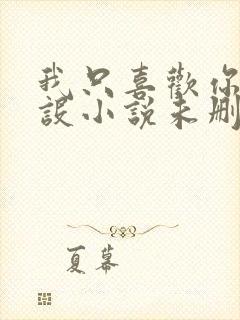 我只喜歡你
設小說未刪
夏幕